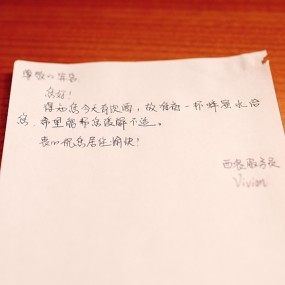 尊敬的宾客
您好!
得知您今天有饮酒,故准备一杯蜂蜜水给
您,希望能帮您缓解不适。
衷心祝您居住愉快!
西餐服务员
Vivian